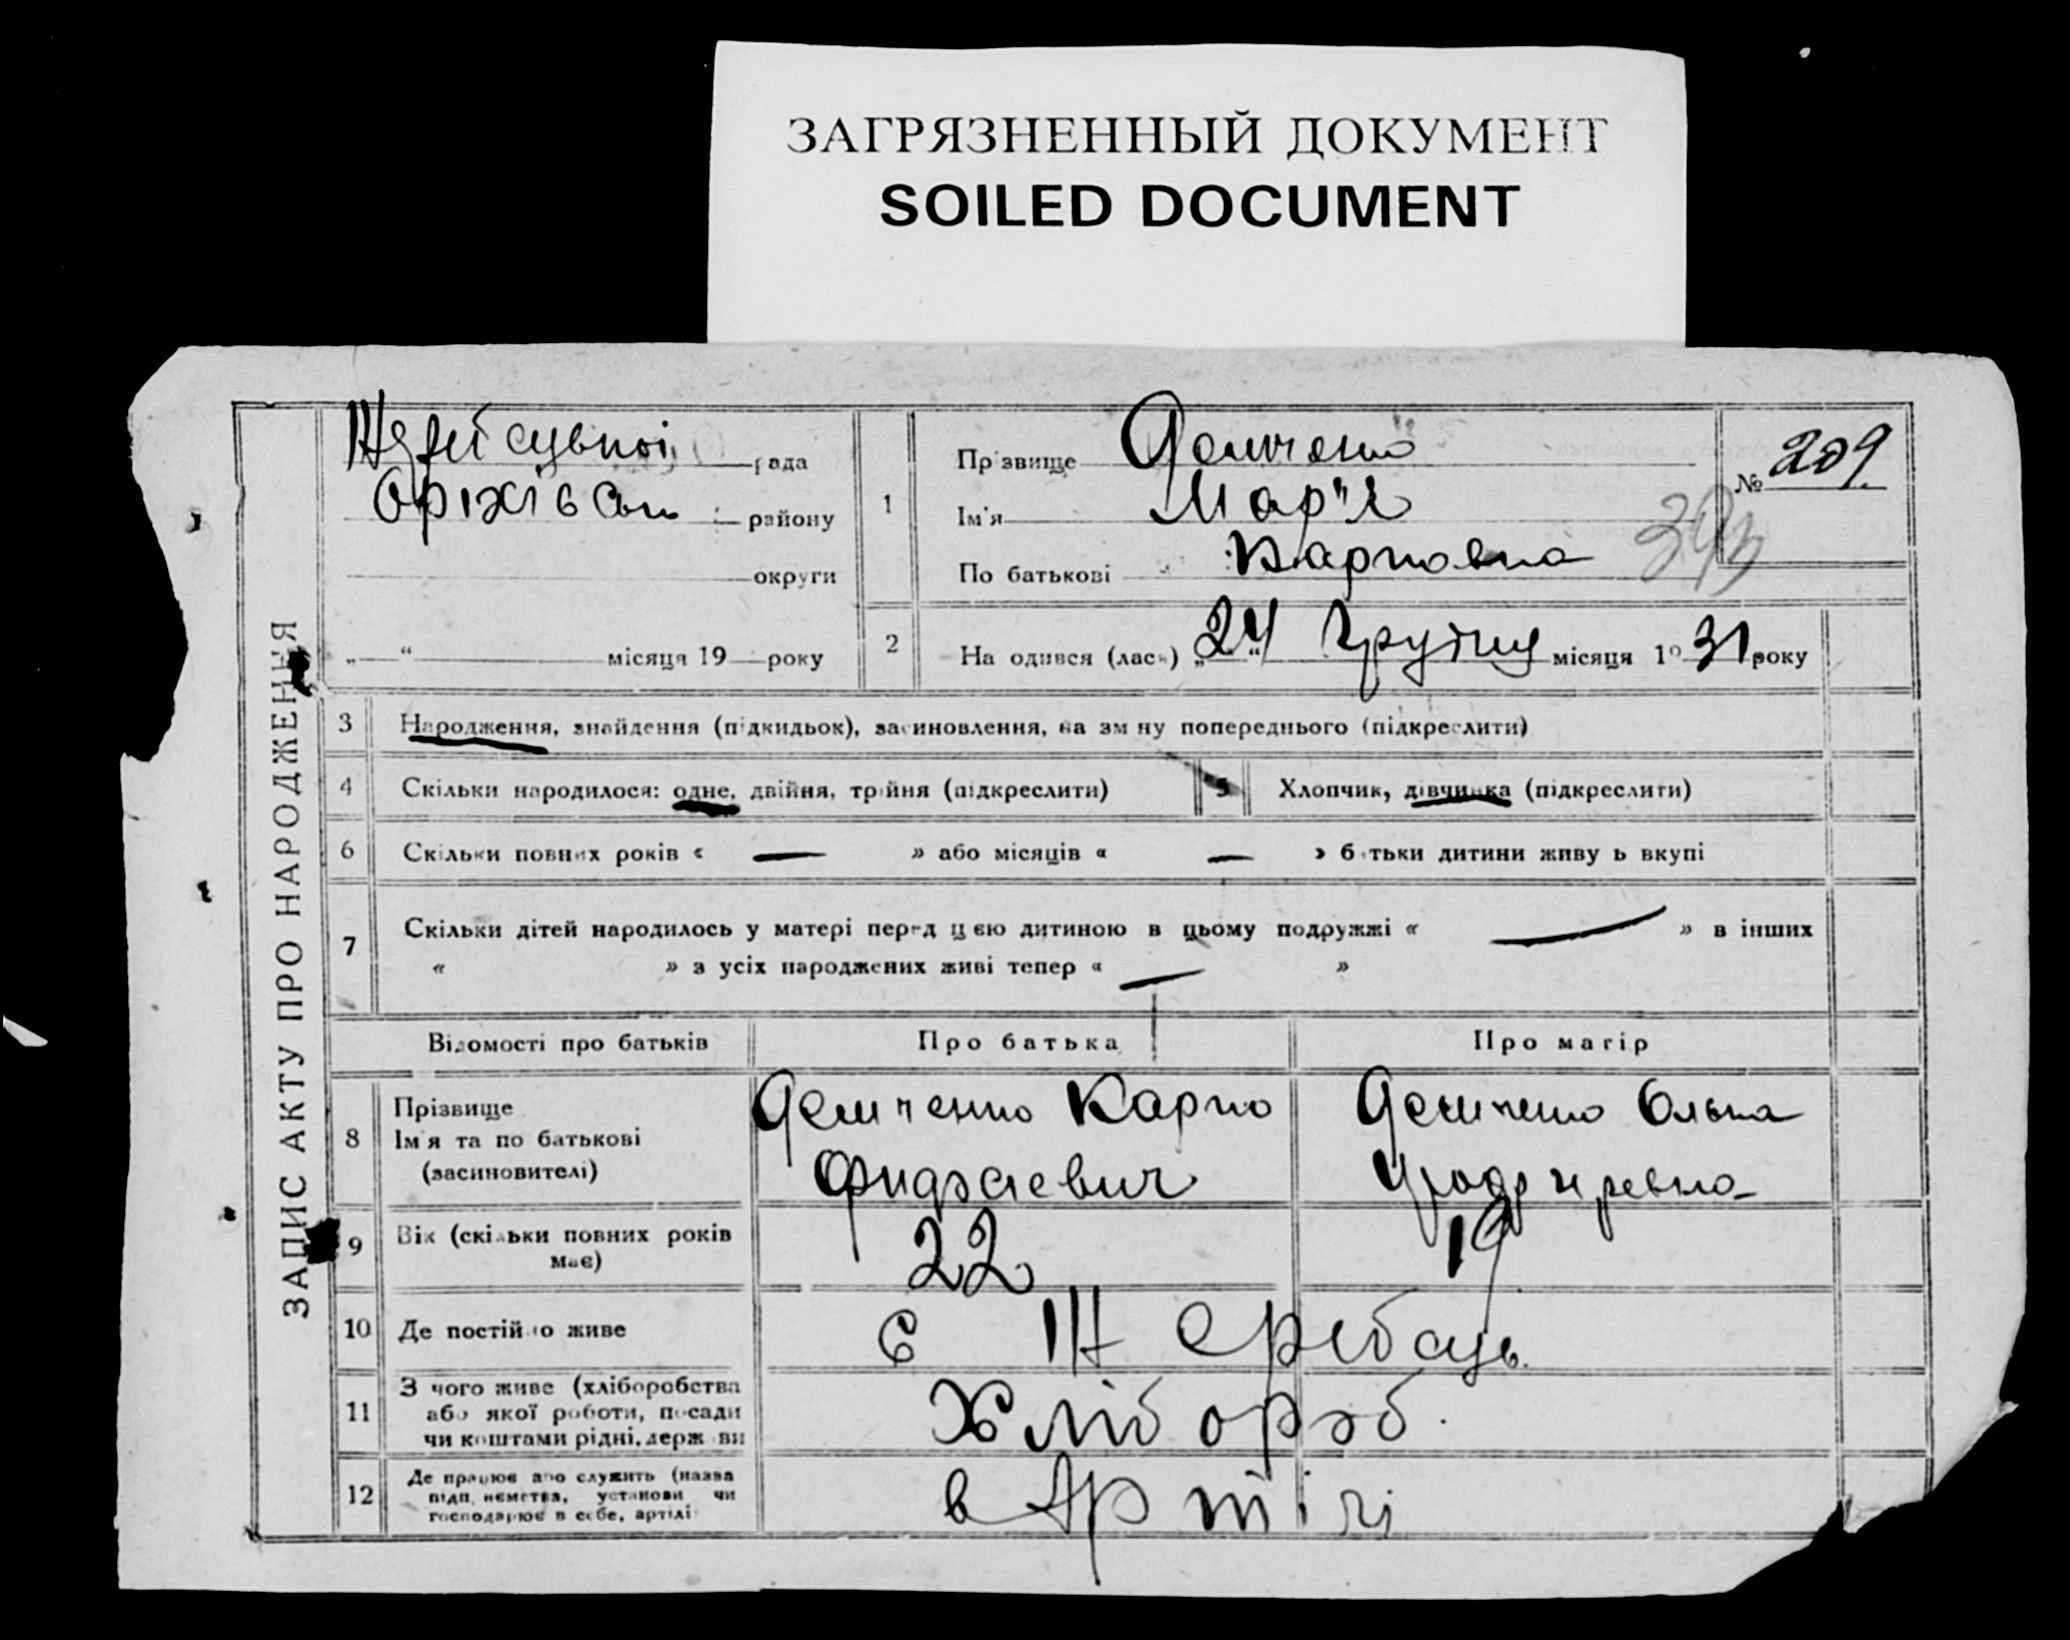 ЗАГРЯЗНЕННЫЙ ДОКУМЕНТ
SOILED DOCUMENT
ЗАПИС АКТУ ПРО НАРОДЖЕННЯ
рада
району
округи
„ “ місяця 19 року
1
Прізвище Демченко
Ім'я Мар'я
По батькові Карповна
№ 209
393
2
Народився (лась) „24“ Грудня місяця 1931 року
3 Народження, знайдення (підкидьок), засиновлення, на зміну попереднього (підкреслити)
4 Скільки народилося: одне, двійня, трійня (підкреслити) 5 Хлопчик, дівчинка (підкреслити)
6 Скільки повних років « — » або місяців « — » батьки дитини живуть вкупі
7 Скільки дітей народилось у матері перед цією дитиною в цьому подружжі « — » в інших
« » з усіх народжених живі тепер « — »
Відомості про батьків Про батька Про матір
8 Прізвище
Ім'я та по батькові
(засиновителі)
Демченко Карпо
Демченко Ольга
9 Вік (скільки повних років
має)
22 19
10 Де постійно живе с
11 З чого живе (хліборобства
або якої роботи, посади
чи коштами рідні, держави
Хлібороб
12 Де працює або служить (назва
підприємства, установи чи
господарює в себе, артілі
в Артілі